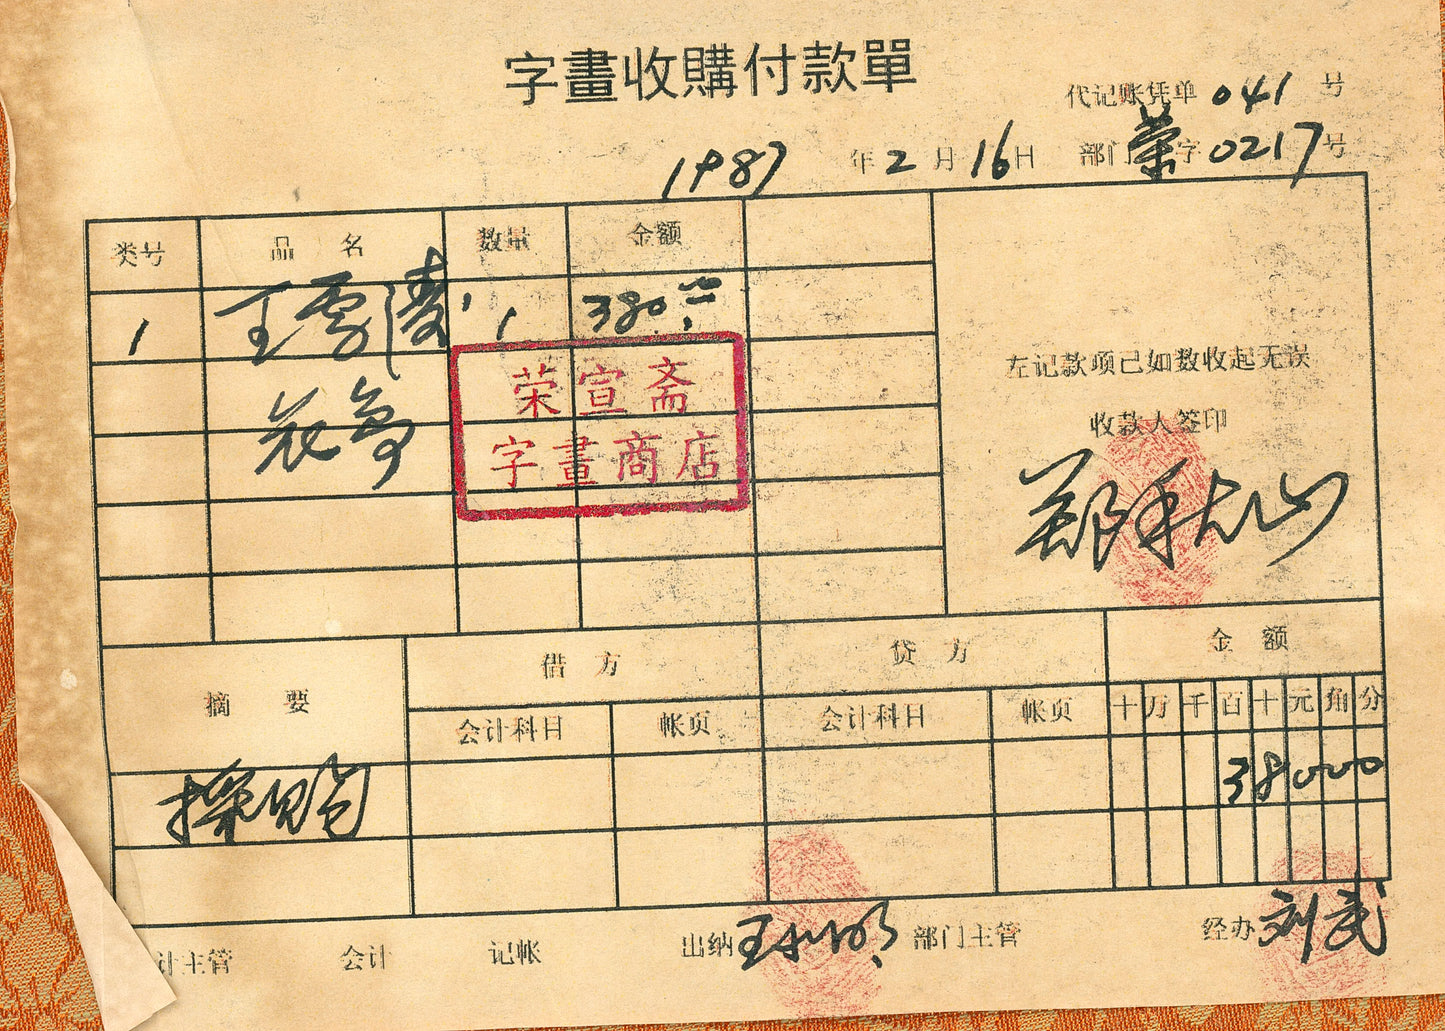 字畫收購付款單
代记账凭单 041 号
1987 年 2 月 16 日 部门 荣 字 0217 号
类号 品名 数量 金额
1 王雪涛 1 380.00
花鸟
荣宣斋
字畫商店
左记款项已如数收起无误
收款人签印
郑秋山
摘要 借方 贷方 金额
会计科目 帐页 会计科目 帐页 十 万 千 百 十 元 角 分
採购 38000
计主管 会计 记帐 出纳 部门主管 经办 刘武